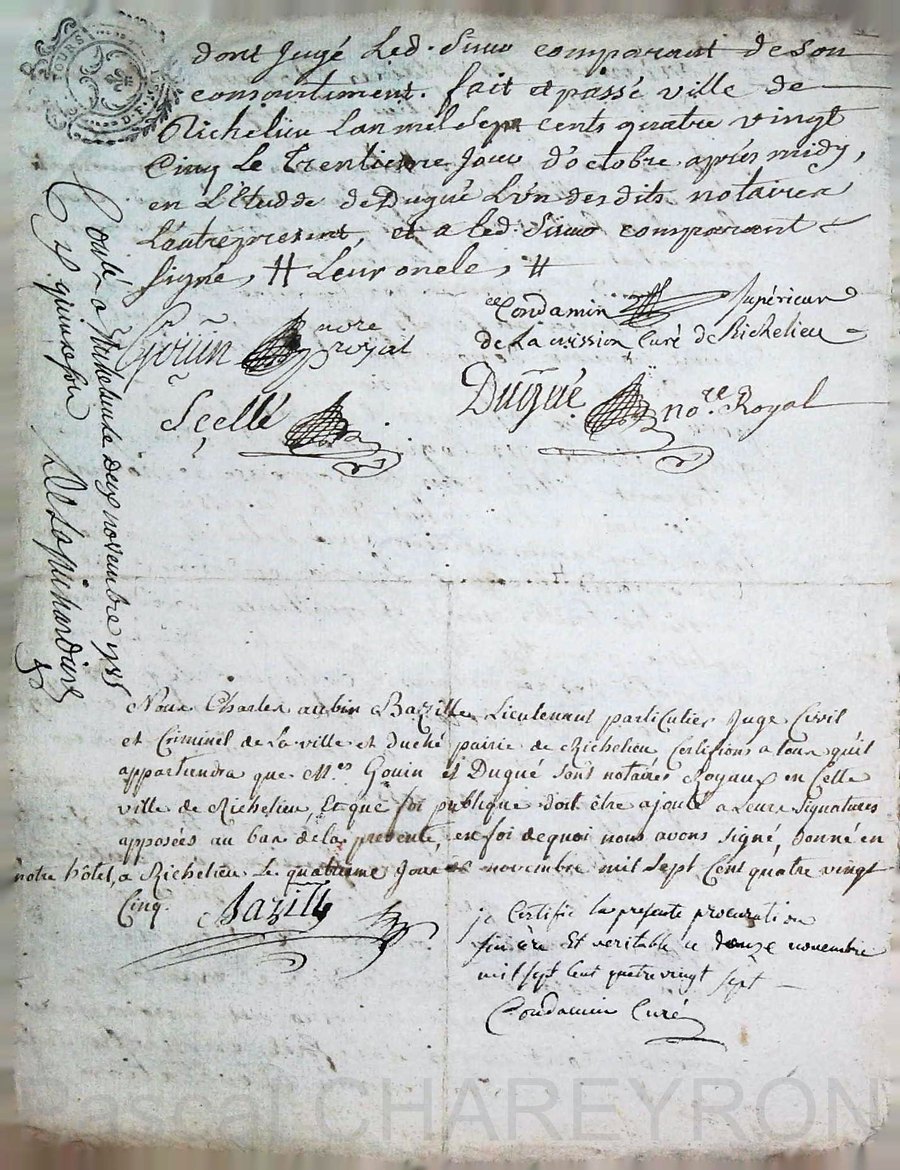 TOURS
dont Jugé Led. Sieur comparant de son
consentement. fait et passé ville de
Richelieu Lan mil Sept cents quatre vingt
Cinq Le Trentieme Jour d'octobre après midy,
en L'Etudde de Dugué L'un des dits notaires
L'autre present, et a led. Sieur comparant
signé, #
Condamin Supérieur
de La mission Curé de Richelieu
Gouin nore royal
Dugué no.re Royal
Scellé
Conlé a Richelieu Le deux novembre 1785
quinze sou
Nous Charles aubin Bazille Lieutenant particulier Juge Civil
et Criminel de La ville et Duché pairie de Richelieu Certifions a tous qu'il
appartiendra que M.es Gouin et Dugué sont notaires Royaux en Cette
ville de Richelieu, Et que foi publique doit être ajouté a Leurs signatures
apposées au bas de la presente, en foi de quoi nous avons signé, Donné en
notre hôtel, a Richelieu Le quatrieme Jour de novembre mil sept Cent quatre vingt
Cinq. Bazille
je Certifie la presente procuration
sincère Et veritable ce douze novembre
mil sept Cent quatre vingt sept
Condamin Curé
Pascal CHAREYRON